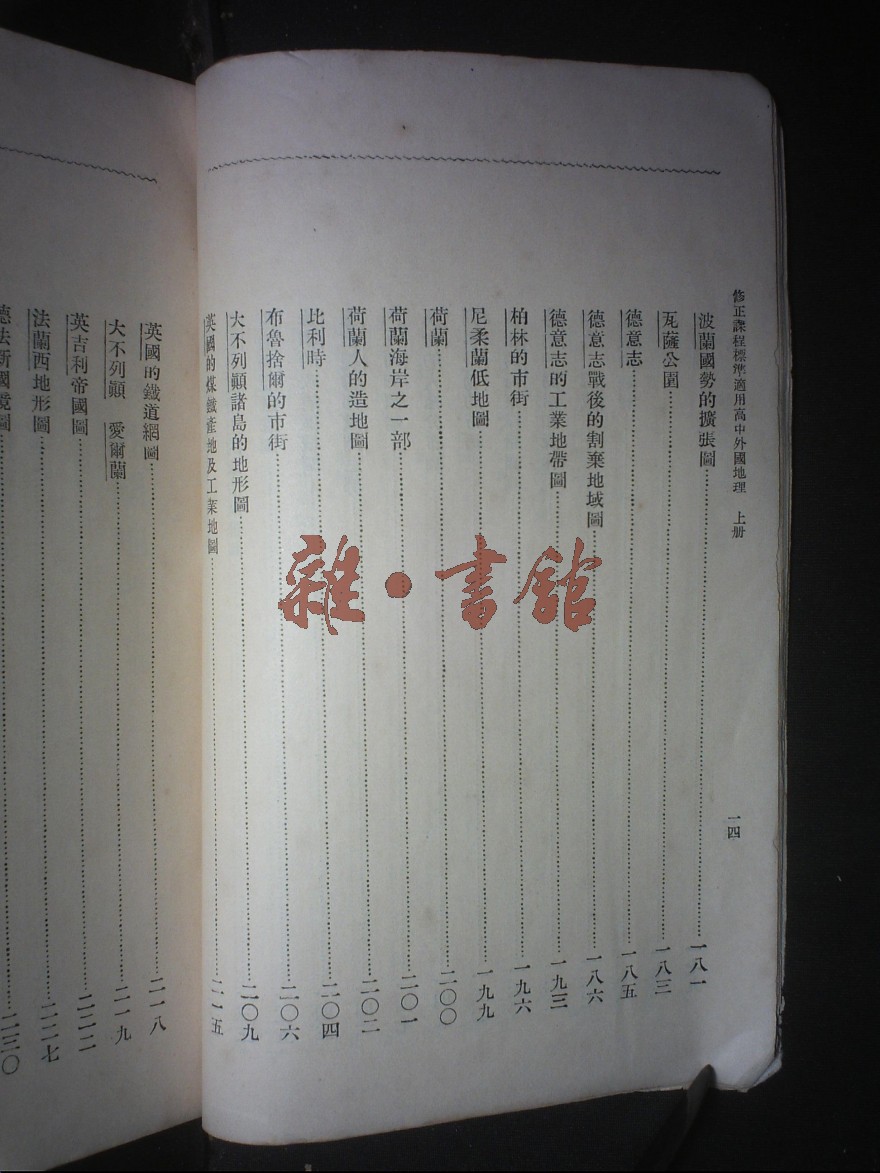 修正課程標準適用高中外國地理 上册
一四
波蘭國勢的擴張圖 一八一
瓦薩公園 一八三
德意志 一八五
德意志戰後的割棄地域圖 一八六
德意志的工業地帶圖 一九三
柏林的市街 一九六
尼柔蘭低地圖 一九九
荷蘭 二〇〇
荷蘭海岸之一部 二〇一
荷蘭人的造地圖 二〇二
比利時 二〇四
布魯捨爾的市街 二〇六
大不列顛諸島的地形圖 二〇九
英國的煤鐵產地及工業地圖 二一五
英國的鐵道網圖 二一八
大不列顛 愛爾蘭 二一九
英吉利帝國圖 二二二
法蘭西地形圖 二二七
德法新國境圖 二三〇
雜·書館